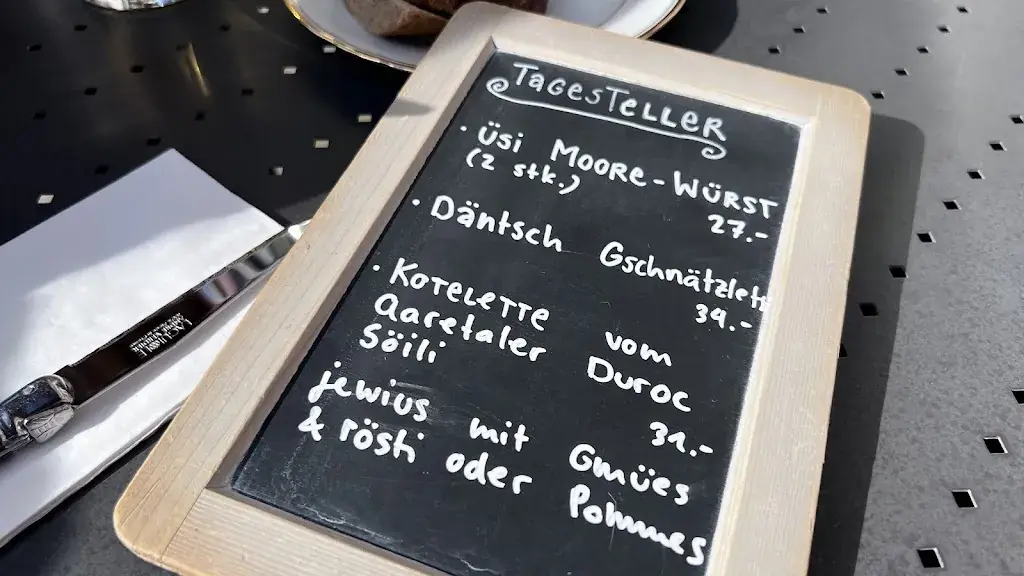 TAGESTELLER
· ÜSi MOORE-WÜRST
(2 stk.) 27.-
· Däntsch Gschnätzlets
39.-
· KOTELETTE vom
Aaretaler Duroc
Söili 31.-
jewius mit Gmües
& rösti oder Pommes